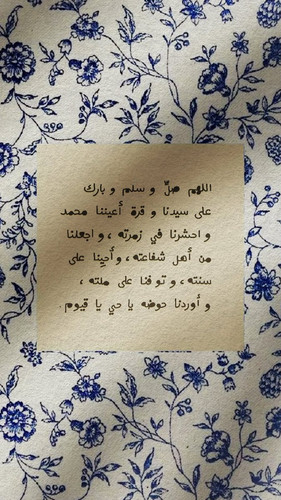 اللهم صلِّ و سلم و بارك
على سيدنا و قرة أعيننا محمد
و احشرنا في زمرته ، و اجعلنا
من أهل شفاعته ، و أحينا على
سنته ، و توفنا على ملته ،
و أوردنا حوضه يا حي يا قيوم .